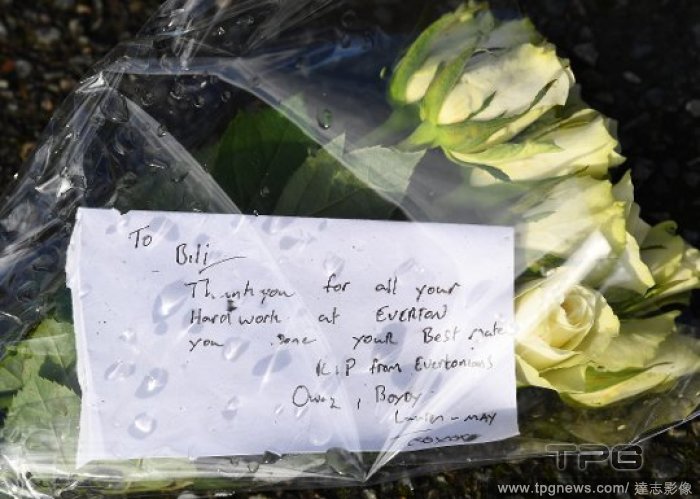 To
Bill
Thank you for all your
Hard work at EVERTON
you done your Best mate
R.I.P from Evertonians
Owaz, Boydy
MAY
TPG
www.tpgnews.com/ 達志影像